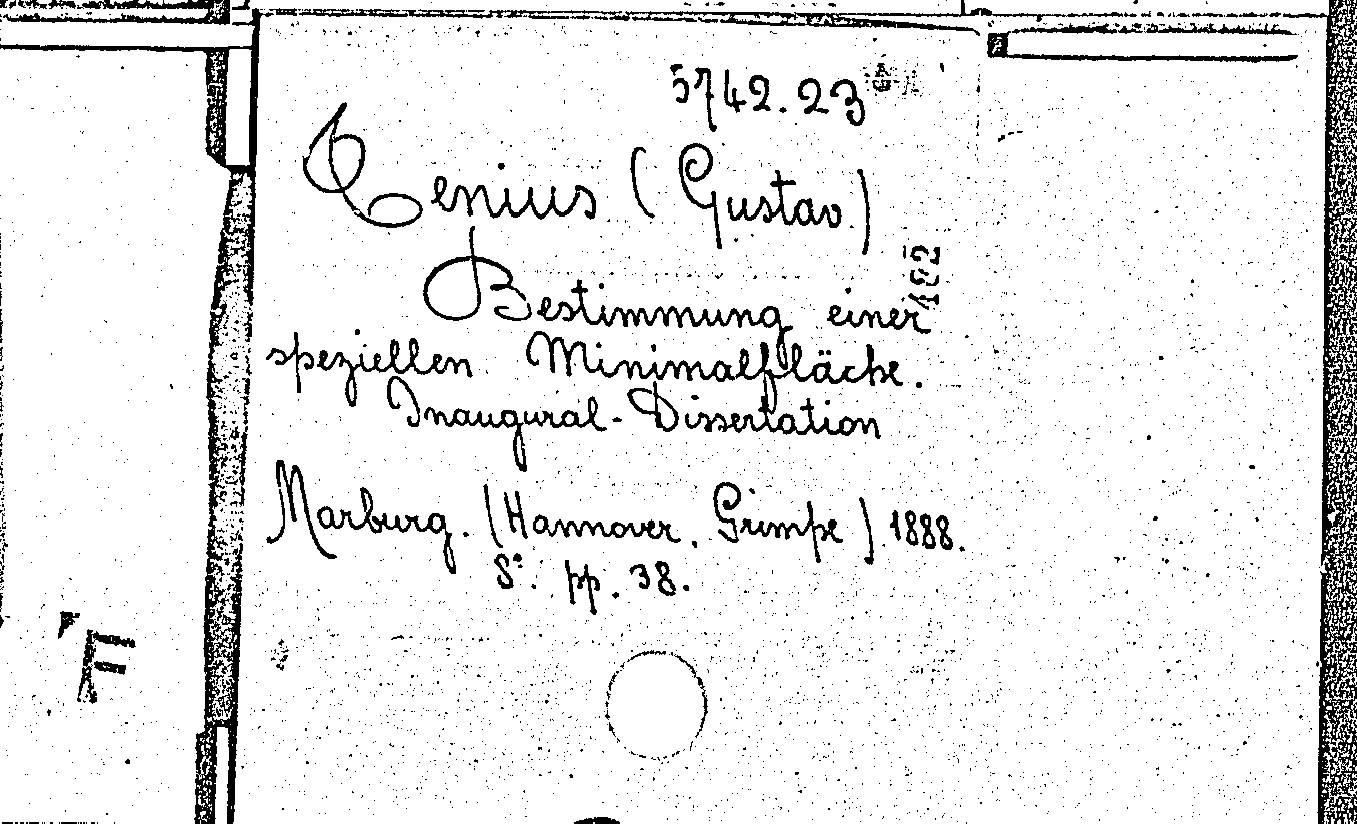 5742.23
Tenius (Gustav)
Bestimmung einer
speziellen Minimalfläche.
Inaugural-Dissertation
Marburg. (Hannover, Grimpe) 1888.
8°. pp. 38.
F